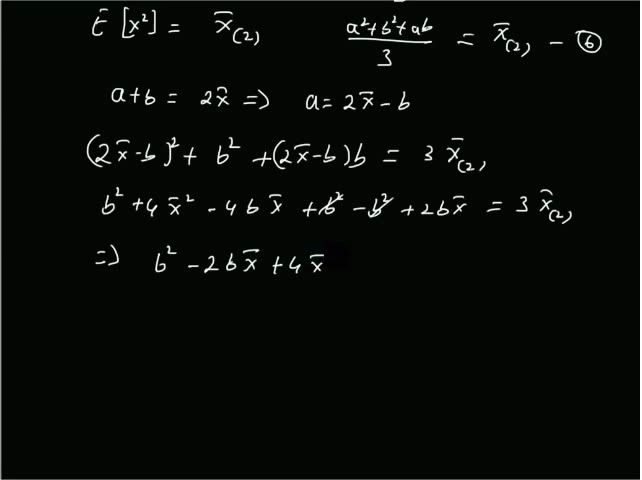 E [x²] = x̄₍₂₎   (a²+b²+ab)/3 = x̄₍₂₎ – ⑥
a+b = 2x̄ => a = 2x̄ – b
(2x̄–b)² + b² + (2x̄–b)b = 3 x̄₍₂₎
b² + 4x̄² – 4bx̄ + b² – b² + 2bx̄ = 3 x̄₍₂₎
=> b² – 2bx̄ + 4x̄